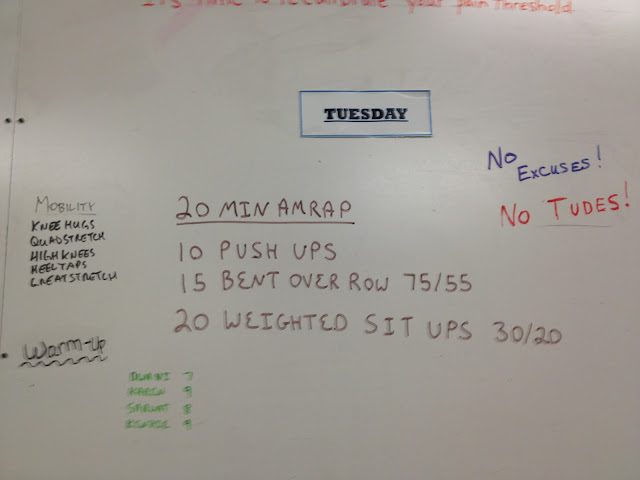 It's time to recalibrate your pain threshold
TUESDAY
No
Excuses!
No TUDES!
MOBILITY
KNEE HUGS
QUADSTRETCH
HIGH KNEES
HEEL TAPS
GREATSTRETCH
20 MIN AMRAP
10 PUSH UPS
15 BENT OVER ROW 75/55
20 WEIGHTED SIT UPS 30/20
Warm-up
7
9
8
9